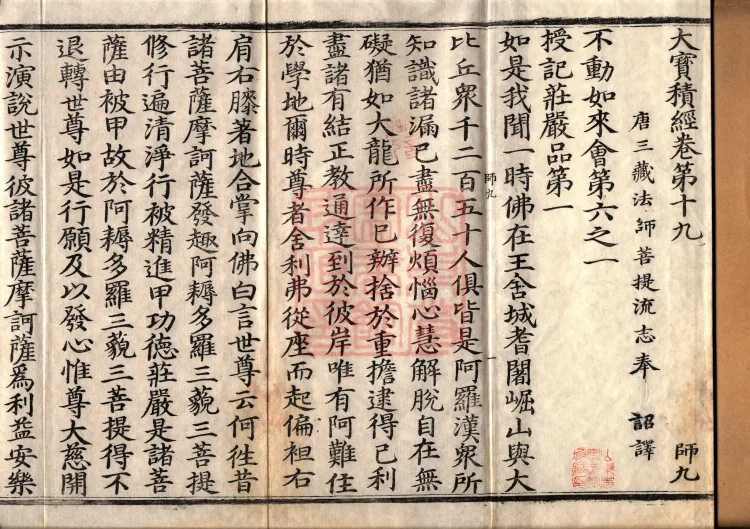 大寶積經卷第十九
師九
唐三藏法師菩提流志奉 詔譯
不動如來會第六之一
授記莊嚴品第一
如是我聞一時佛在王舍城耆闍崛山與大
師九
一
比丘眾千二百五十人俱皆是阿羅漢眾所
知識諸漏已盡無復煩惱心慧解脫自在無
礙猶如大龍所作已辦捨於重擔逮得已利
盡諸有結正教通達到於彼岸唯有阿難住
於學地爾時尊者舍利弗從座而起偏袒右
肩右膝著地合掌向佛白言世尊云何往昔
諸菩薩摩訶薩發趣阿耨多羅三藐三菩提
修行遍清淨行被精進甲功德莊嚴是諸菩
薩由被甲故於阿耨多羅三藐三菩提得不
退轉世尊如是行願及以發心惟尊大慈開
示演說世尊彼諸菩薩摩訶薩為利益安樂